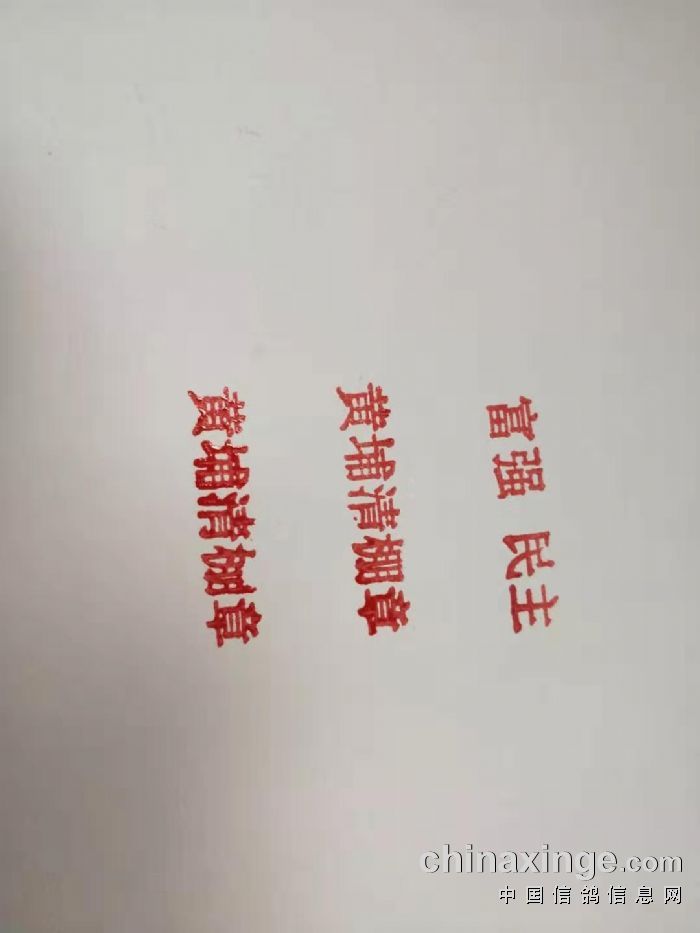 富强 民主
黄埔清棚章
黄埔清棚章
chinaxinge.com
中国信鸽信息网